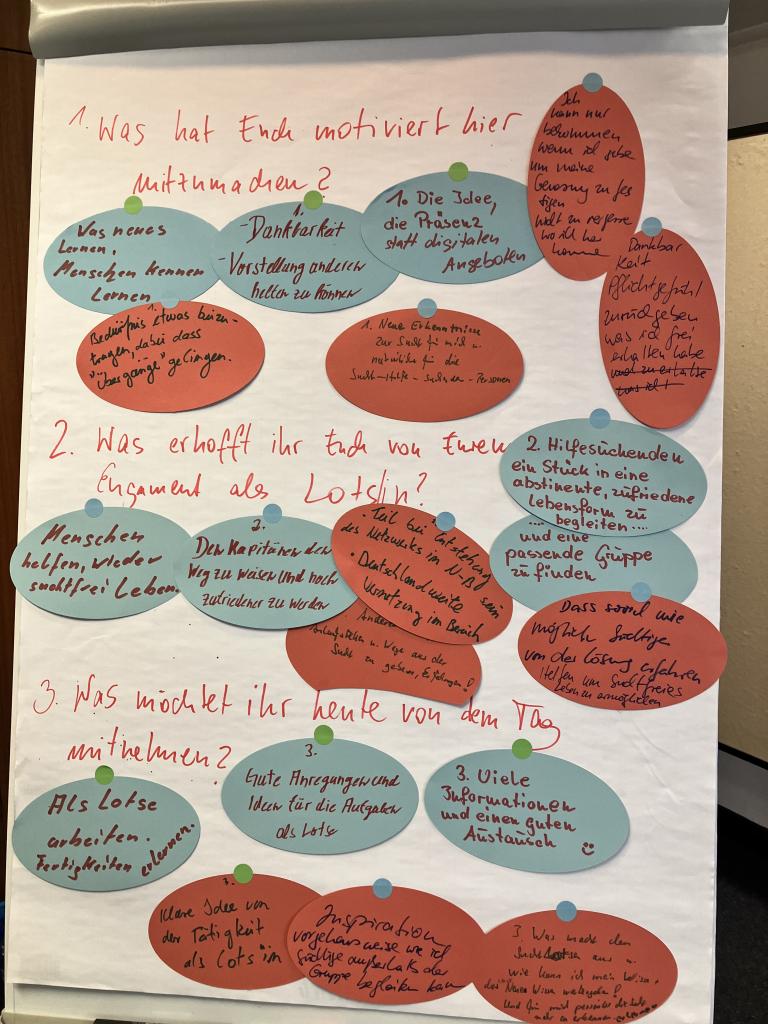 1. Was hat Euch motiviert hier
mitzumachen?
Was neues
Lernen,
Menschen kennen
Lernen
1.
- Dankbarkeit
- Vorstellung anderen
helfen zu können
1. Die Idee,
die Präsenz
statt digitalen
Angeboten
Ich
kann nur
bekommen
wenn ich gebe
um meine
Genesung zu fes
tigen
nicht zu
wo ich her
komme
Dankbar
keit
Pflichtgefühl
zurückgeben
was ich frei
erhalten habe
Bedürfnis etwas beizu-
tragen, dabei dass
"Übergänge" gelingen.
1. Neue Erkenntnisse
zur Sucht für mich u.
natürlich für die
Sucht-Hilfe-suchenden-Personen
2. Was erhofft ihr Euch von Eurem
Engament als Lotsin?
Menschen
helfen, wieder
suchtfrei Leben.
2.
Den Kapitänen den
Weg zu weisen und noch
zufriedener zu werden
• Teil bei Entstehung
des Netzwerkes im N-BL sein
• Deutschlandweite
Vernetzung im Bereich
Anderen
Anlaufstellen u. Wege aus der
Sucht zu geben, Erfahrungen!
2. Hilfesuchenden
ein Stück in eine
abstinente, zufriedene
Lebensform zu
begleiten....
.... und eine
passende Gruppe
zu finden
Dass soviel wie
möglich Süchtige
von der Lösung erfahren
Helfen um Suchtfreies
Leben zu ermöglichen
3. Was möchtet ihr heute von dem Tag
mitnehmen?
Als Lotse
arbeiten.
Fertigkeiten erlernen.
3.
Gute Anregungen und
Ideen für die Aufgaben
als Lotse
3. Viele
Informationen
und einen guten
Austausch ☺
3.
Klare Idee von
der Tätigkeit
als Lots*in
Inspiration
vorgehensweise wie ich
Süchtige außerhalb der
Gruppe begleiten kann
3. Was macht den
Suchtlotsen aus u.
wie kann ich mein Wissen,
das Neue Wissen weitergeben!
Und für mich persönlich
mehr zu erkennen